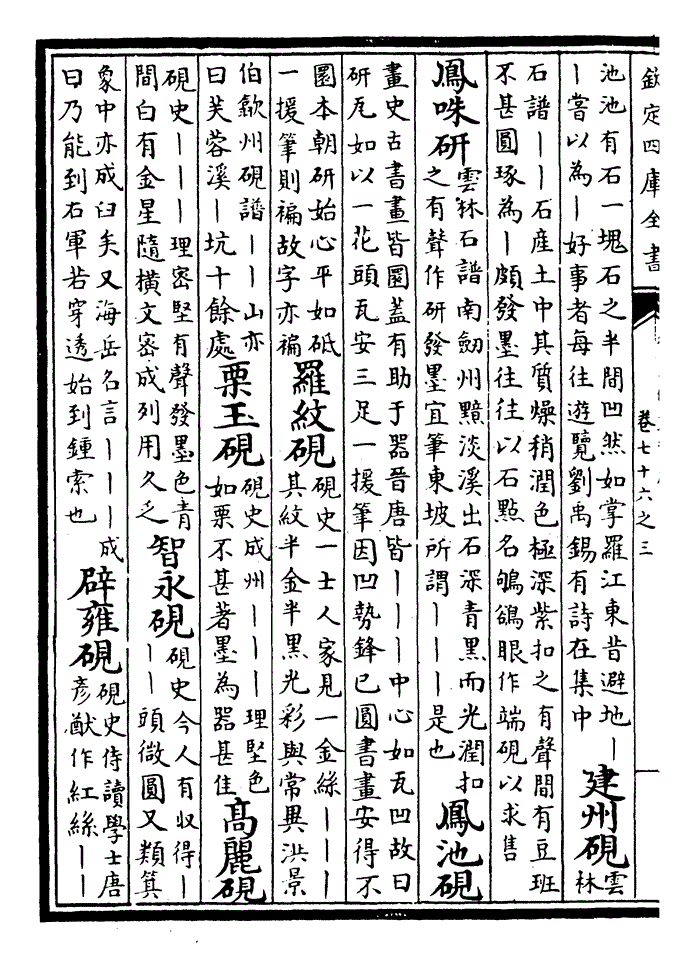 欽定四庫全書
卷七十六之三
池池有石一塊石之半間凹然如掌羅江東昔避地｜
｜嘗以為｜好事者每往遊覽劉禹錫有詩在集中
建州硯
雲
林
石譜｜｜石產土中其質燥稍潤色極深紫扣之有聲間有豆班
不甚圓琢為｜頗發墨往往以石點名鴝鵒眼作端硯以求售
鳳咮研
雲林石譜南劔州黯淡溪出石深青黑而光潤扣
之有聲作研發墨宜筆東坡所謂｜｜｜是也
鳳池硯
畫史古書畫皆圜盖有助于器晉唐皆｜｜｜中心如瓦凹故曰
研瓦如以一花頭瓦安三足一援筆因凹勢鋒已圓書畫安得不
圜本朝研始心平如砥
一援筆則褊故字亦褊
羅紋硯
硯史一士人家見一金絲｜｜｜
其紋半金半黑光彩與常異洪景
伯歙州硯譜｜｜山亦
曰芙蓉溪｜坑十餘處
栗玉硯
硯史成州｜｜｜理堅色
如栗不甚著墨為器甚佳
高麗硯
硯史｜｜｜理密堅有聲發墨色青
間白有金星隨橫文密成列用久乏
智永硯
硯史今人有収得｜
｜｜頭微圓又類箕
象中亦成臼矣又海岳名言｜｜｜成
曰乃能到右軍若穿透始到鍾索也
辟雍硯
硯史侍讀學士唐
彥猷作紅絲｜｜